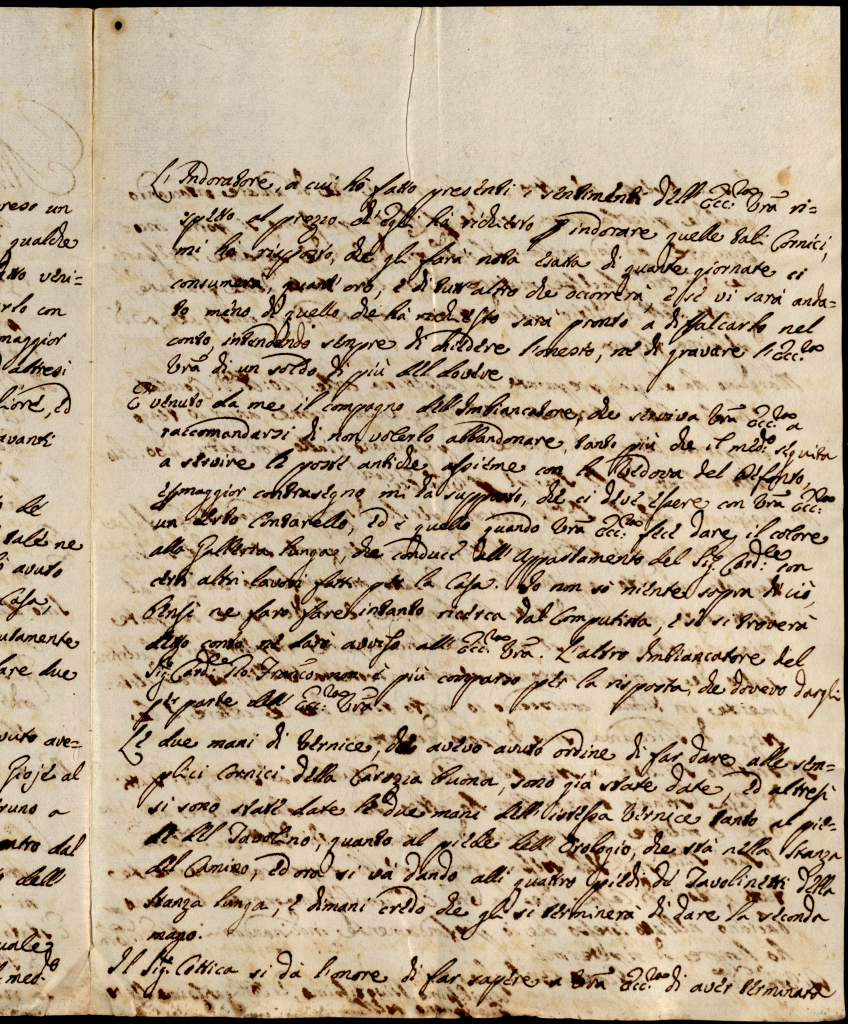 reso un
qualche
tto veni=
rlo con
maggior
altresì
liore, ed
avanti
le
tale ne
avuto
Casa,
utamente
are due
vuto ave=
Gioje al
runo a
entro dal
dell'
quale
med.º
L'Indoratore, a cui hò fatto presenti i sentimenti dell'Ecc.ᶻᵃ Vrã ri=
spetto al prezzo ch'egli hà richiesto p indorare quelle tali Cornici,
mi hà risposto, che gli farà nota esatta di quante giornate ci
consumerà, quant'oro, e di tutt'altro che occorrerà, e se vi sarà anda=
to meno di quello che hà richiesto sarà pronto a diffalcarlo nel
conto, intendendo sempre di chiedere l'onesto, nè di gravare l'Ecc.ᶻᵃ
Vrã di un soldo di più del dovere
È venuto da me il compagno dell'Imbiancatore, che serviva Vrã Ecc.ᶻᵃ a
raccomandarsi di non volerlo abbandonare, tanto più che il med.º seguita
a servire le poste antiche assieme con la Vedova del Defonto,
e p maggior contrasegno mi hà supposto, che ci deve essere con Vrã Ecc.ᶻᵃ
un certo Contarello, ed è quello quando Vrã Ecc.ᶻᵃ fece dare il colore
alla Galleria lunga, che conduce all'Appartamento del Sig.ʳ Card.ˡᵉ con
certi altri lavori fatti per la Casa. Io non sò niente sopra di ciò,
bensì ne farò fare intanto ricerca dal Computista, e se si troverà
detto conto ne darò avviso all'Ecc.ᶻᵃ Vrã. L'altro Imbiancatore del
Sig.ʳ Card.ˡᵉ Gio: Franc.º non è più comparso per la risposta, che dovevo dargli
per parte dell'Ecc.ᶻᵃ Vrã.
Le due mani di Vernice, che avevo avuto ordine di far dare alle sem=
plici cornici della Carozza buona, sono già state date, ed altresì
si sono state date le due mani dell'istessa Vernice tanto al pie=
de del Tavolino, quanto al piede dell'Orologio, che stà nella Stanza
del Camino, ed ora si và dando alli quattro piedi de' Tavolinetti della
Stanza lunga, e dimani credo che gli si terminerà di dare la seconda
mano.
Il Sig.ʳ Cottica si dà l'onore di far sapere a Vrã Ecc.ᶻᵃ di aver terminata